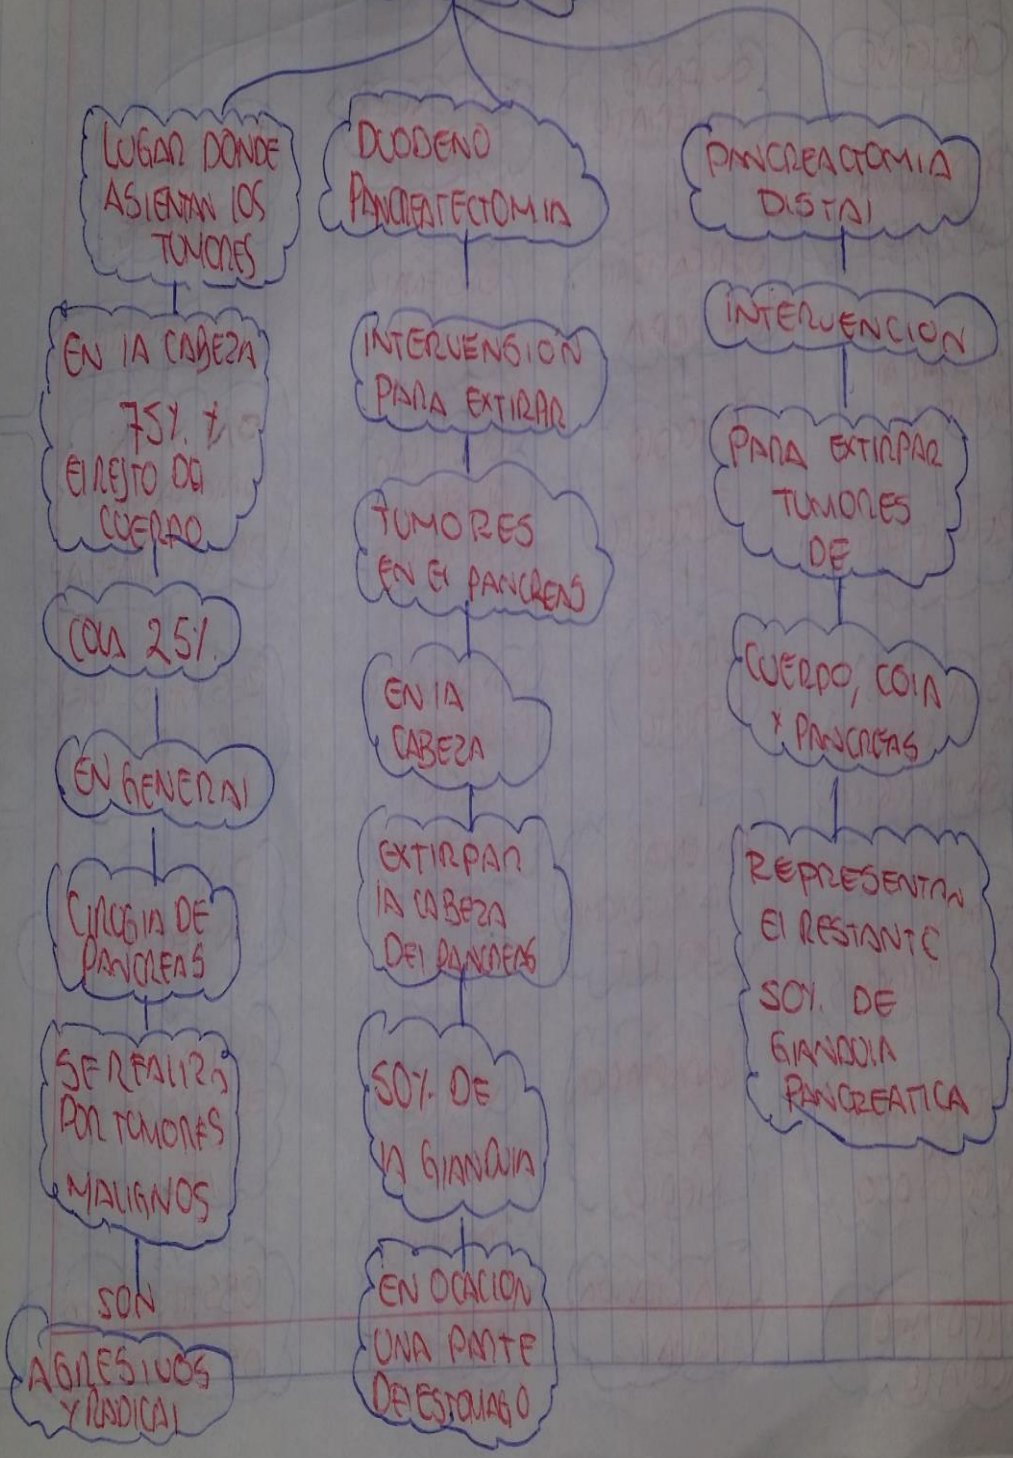 LUGAR DONDE
ASIENTAN LOS
TUMORES
EN LA CABEZA
75%. Y
El RESTO DEl
CUERPO
COLA 25%.
EN GENERAl
CIRUGIA DE
PANCREAS
SE REALIZA
POR TUMORES
MALIGNOS
SON
AGRESIVOS
Y RADICAl
DUODENO
PANCREATECTOMIA
INTERVENSION
PARA EXTIRAR
TUMORES
EN El PANCREAS
EN lA
CABEZA
EXTIRPAR
lA CABEZA
DEl PANCREAS
50%. DE
lA GlANDULA
EN OCACION
UNA PARTE
DEl ESTOMAGO
PANCREACTOMIA
DISTAl
INTERVENCION
PARA EXTIRPAR
TUMORES
DE
CUERPO, COlA
Y PANCREAS
REPRESENTAN
El RESTANTE
50%. DE
GlANDULA
PANCREATICA